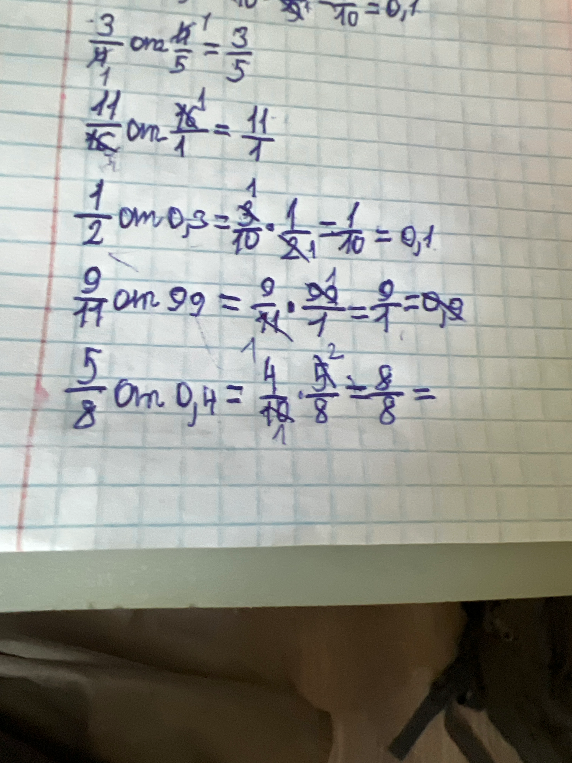 10 = 0,1
3/4 1 от 4/5 1 = 3/5
11/16 от 16/1 1 = 11/1
1/2 от 0,3 = 3/10 1 · 1/2 1 = 1/10 = 0,1
9/11 от 99 = 9/11 1 · 99/1 1 = 9/1 = 0,9
5/8 от 0,4 = 4/10 1 · 5/8 2 = 8/8 =